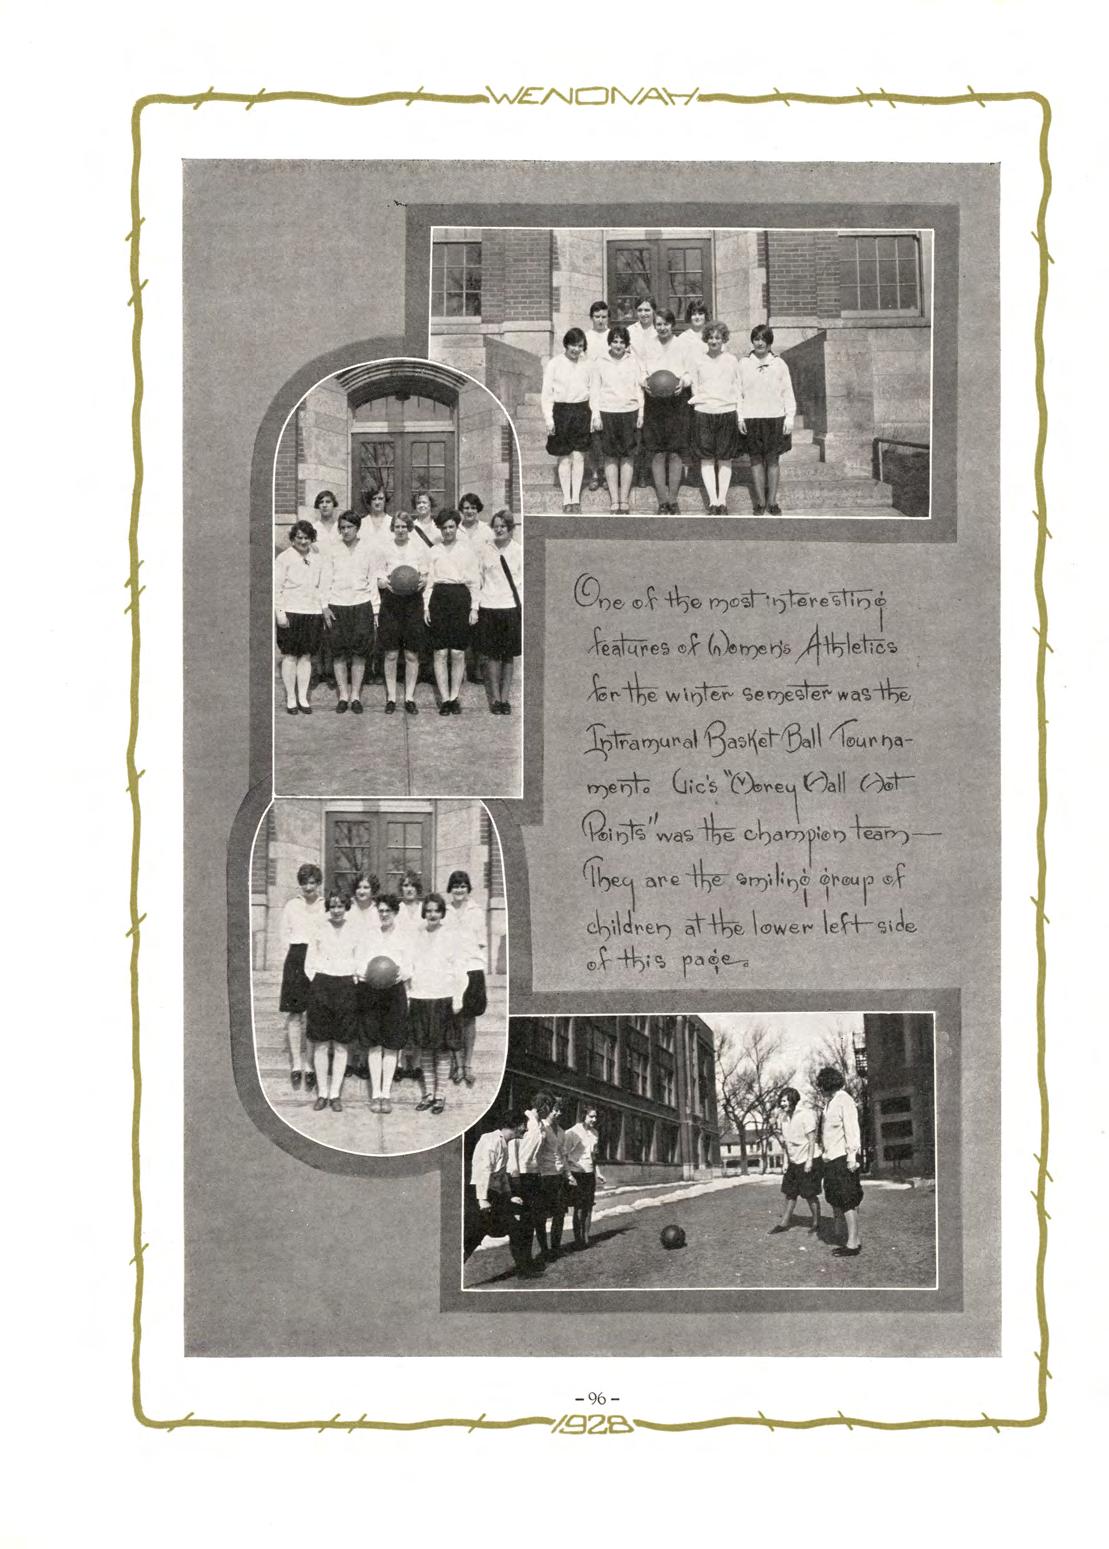 WENONAH
One of the most interesting
features of Women's Athletics
for the winter semester was the
Intramural Basket Ball Tourna-
ment. Vic's "Morey Hall Hot
Points" was the champion team—
They are the smiling group of
children at the lower left side
of this page.
- 96 -
1928